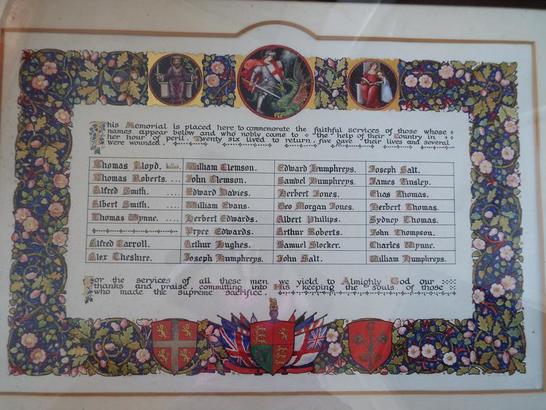 This Memorial is placed here to commemorate the faithful services of those whose
names appear below and who nobly came to the help of their Country in
her hour of peril. Twenty six lived to return, five gave their lives and several
were wounded.
Thomas Lloyd, killed. William Clemson. Edward Humphreys. Joseph Salt.
Thomas Roberts. John Clemson. Samuel Humphreys. James Tinsley.
Alfred Smith. Edward Davies. Herbert Jones. Elias Thomas.
Albert Smith. William Evans. Geo Morgan Jones. Herbert Thomas.
Thomas Wynne. Herbert Edwards. Albert Phillips. Sydney Thomas.
Pryce Edwards. Arthur Roberts. John Thompson.
Alfred Carroll. Arthur Hughes. Samuel Slocker. Charles Wynne.
Alex Cheshire. Joseph Humphreys. John Salt. William Humphreys.
For the services of all these men we yield to Almighty God our
thanks and praise, committing into His keeping the Souls of those
who made the supreme sacrifice.